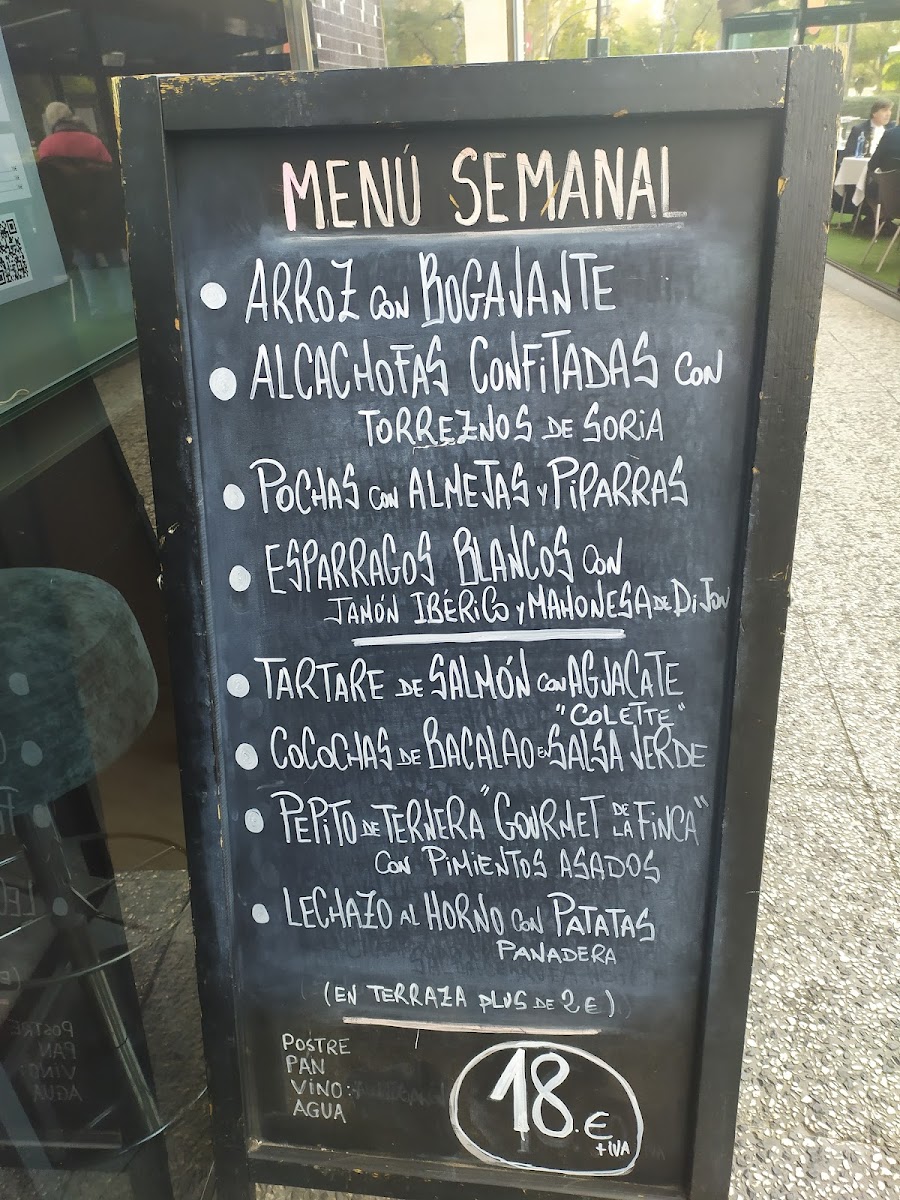 MENÚ SEMANAL
• ARROZ CON BOGAVANTE
• ALCACHOFAS CONFITADAS CON
TORREZNOS DE SORIA
• POCHAS CON ALMEJAS Y PIPARRAS
• ESPARRAGOS BLANCOS CON
JAMÓN IBÉRICO Y MAHONESA DE DIJON
• TARTARE DE SALMÓN CON AGUACATE
"COLETTE"
• COCOCHAS DE BACALAO EN SALSA VERDE
• PEPITO DE TERNERA "GOURMET DE LA FINCA"
CON PIMIENTOS ASADOS
• LECHAZO AL HORNO CON PATATAS
PANADERA
(EN TERRAZA PLUS DE 2€)
POSTRE
PAN
VINO:
AGUA
18.€
+IVA